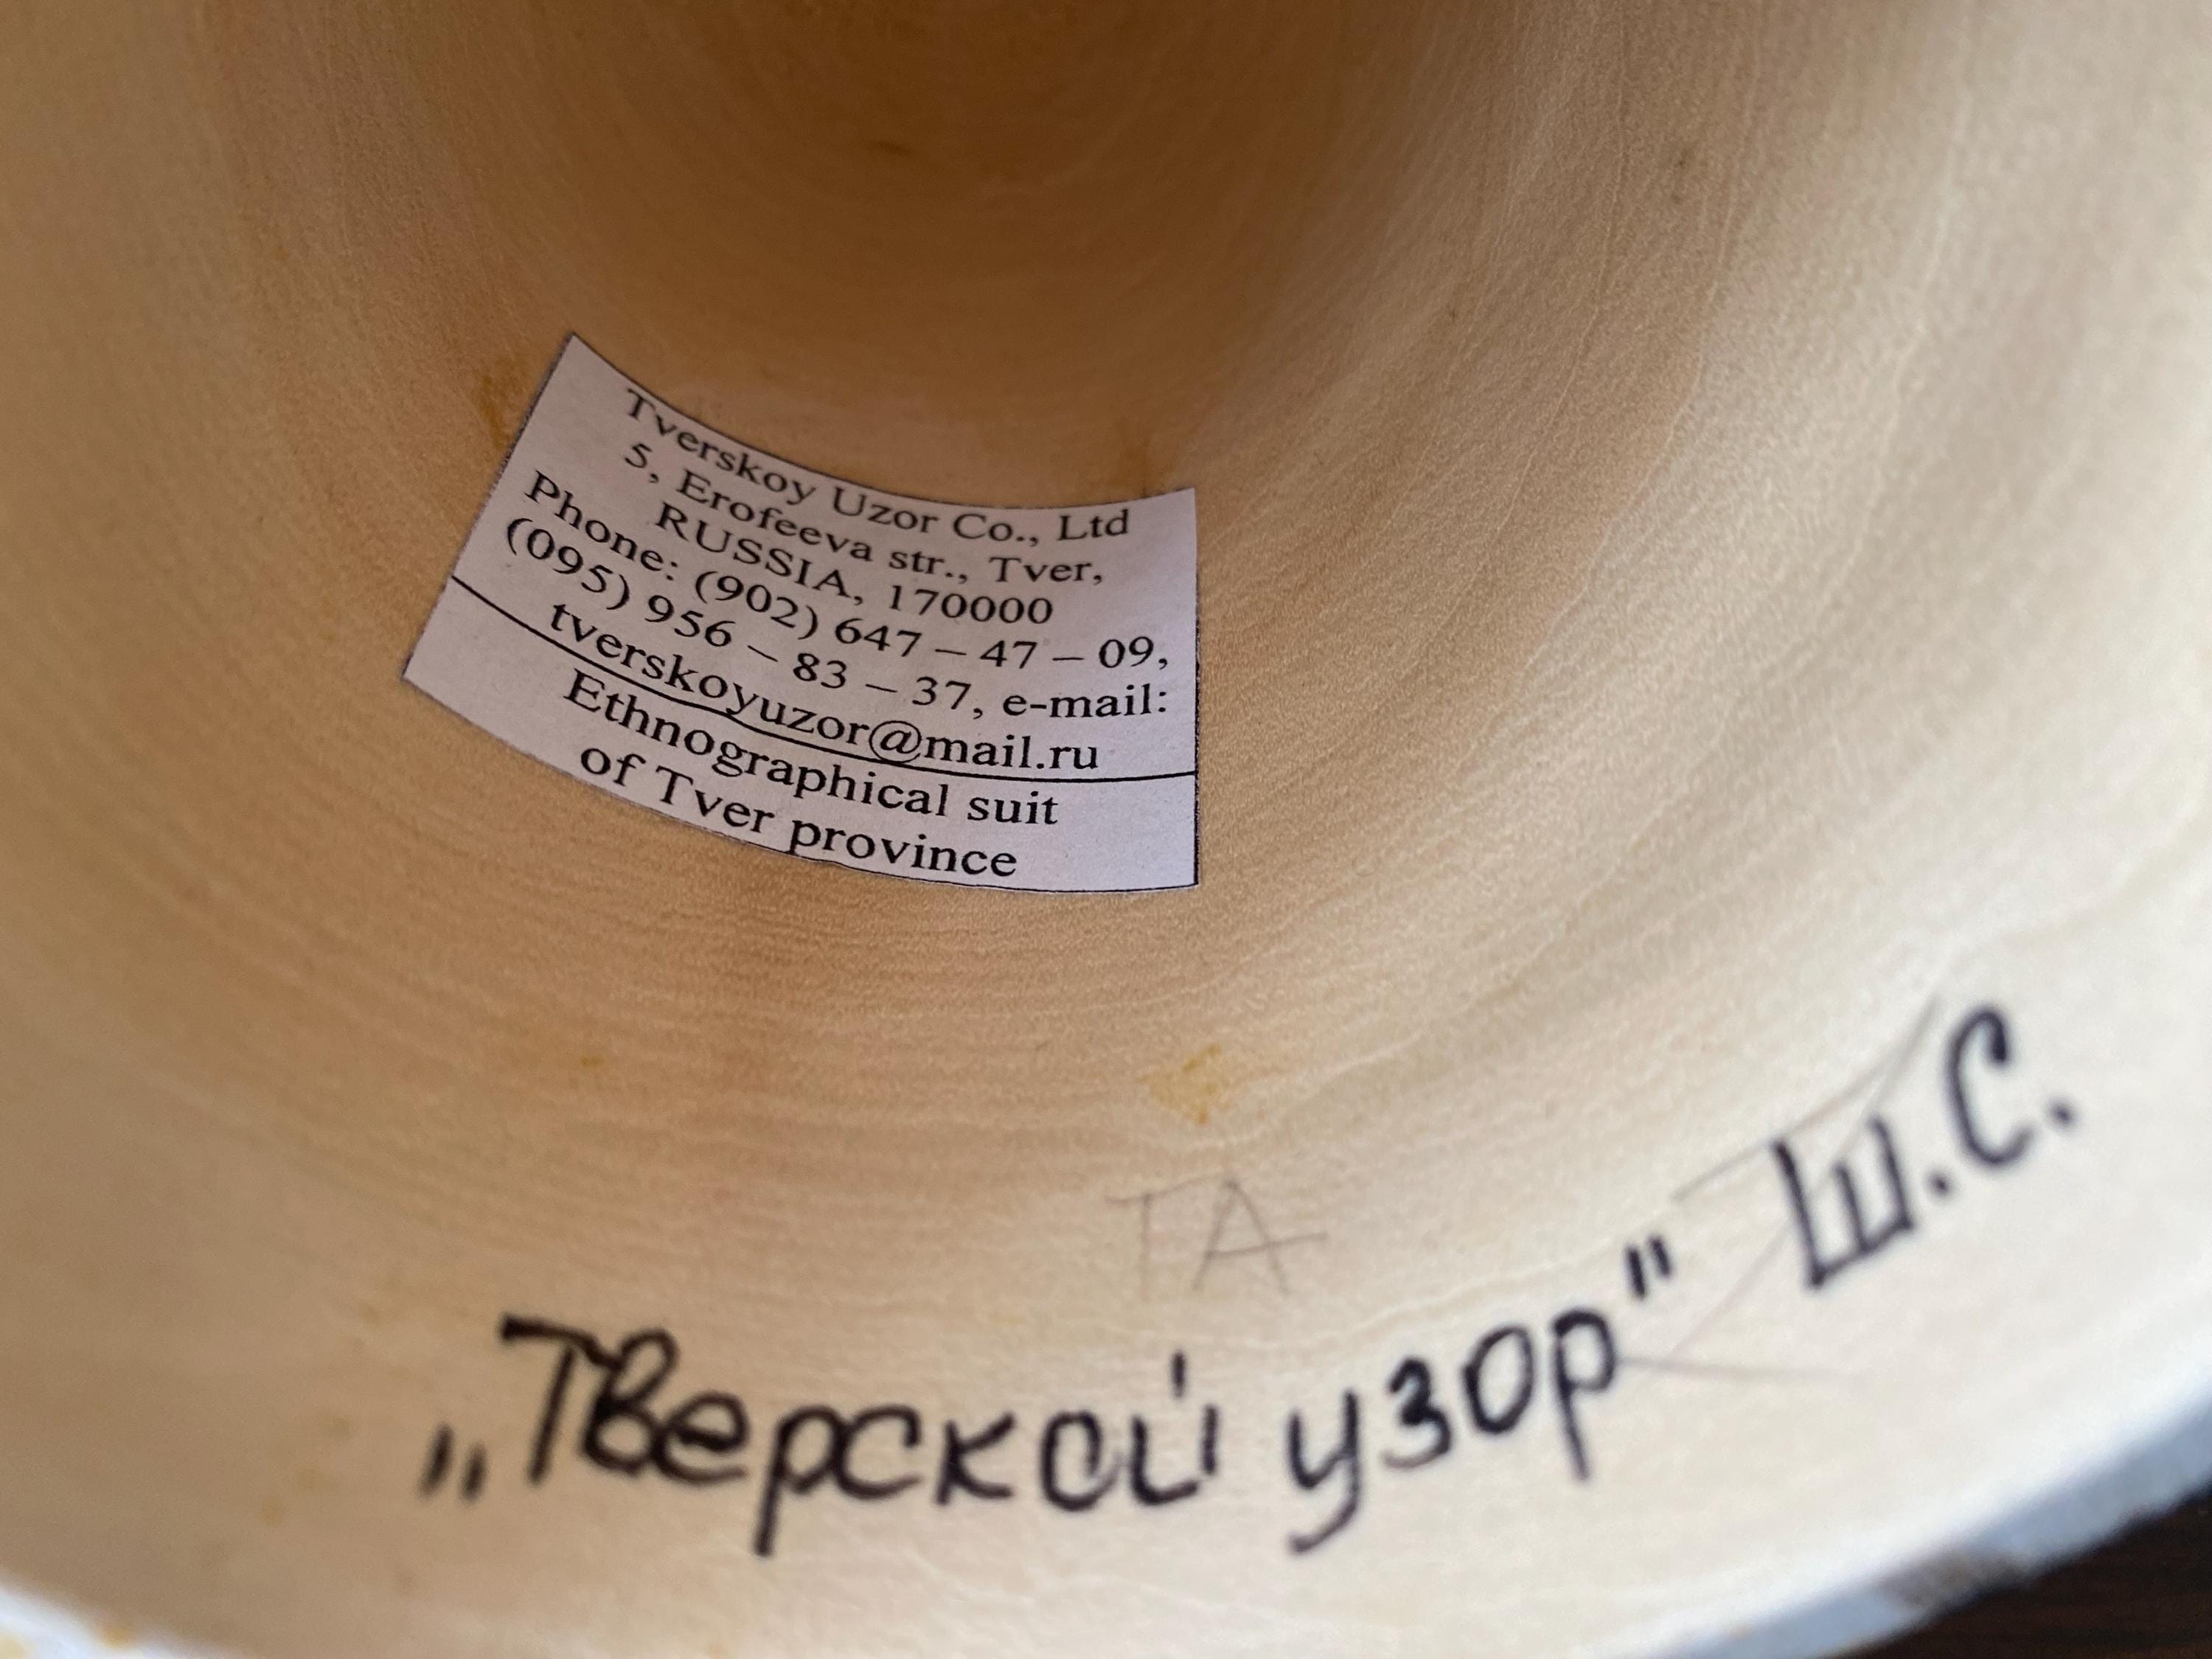 Tverskoy Uzor Co., Ltd
5, Erofeeva str., Tver,
RUSSIA, 170000
Phone: (902) 647 – 47 – 09,
(095) 956 – 83 – 37, e-mail:
tverskoyuzor@mail.ru
Ethnographical suit
of Tver province
ТА
„Тверской узор" Ш.С.